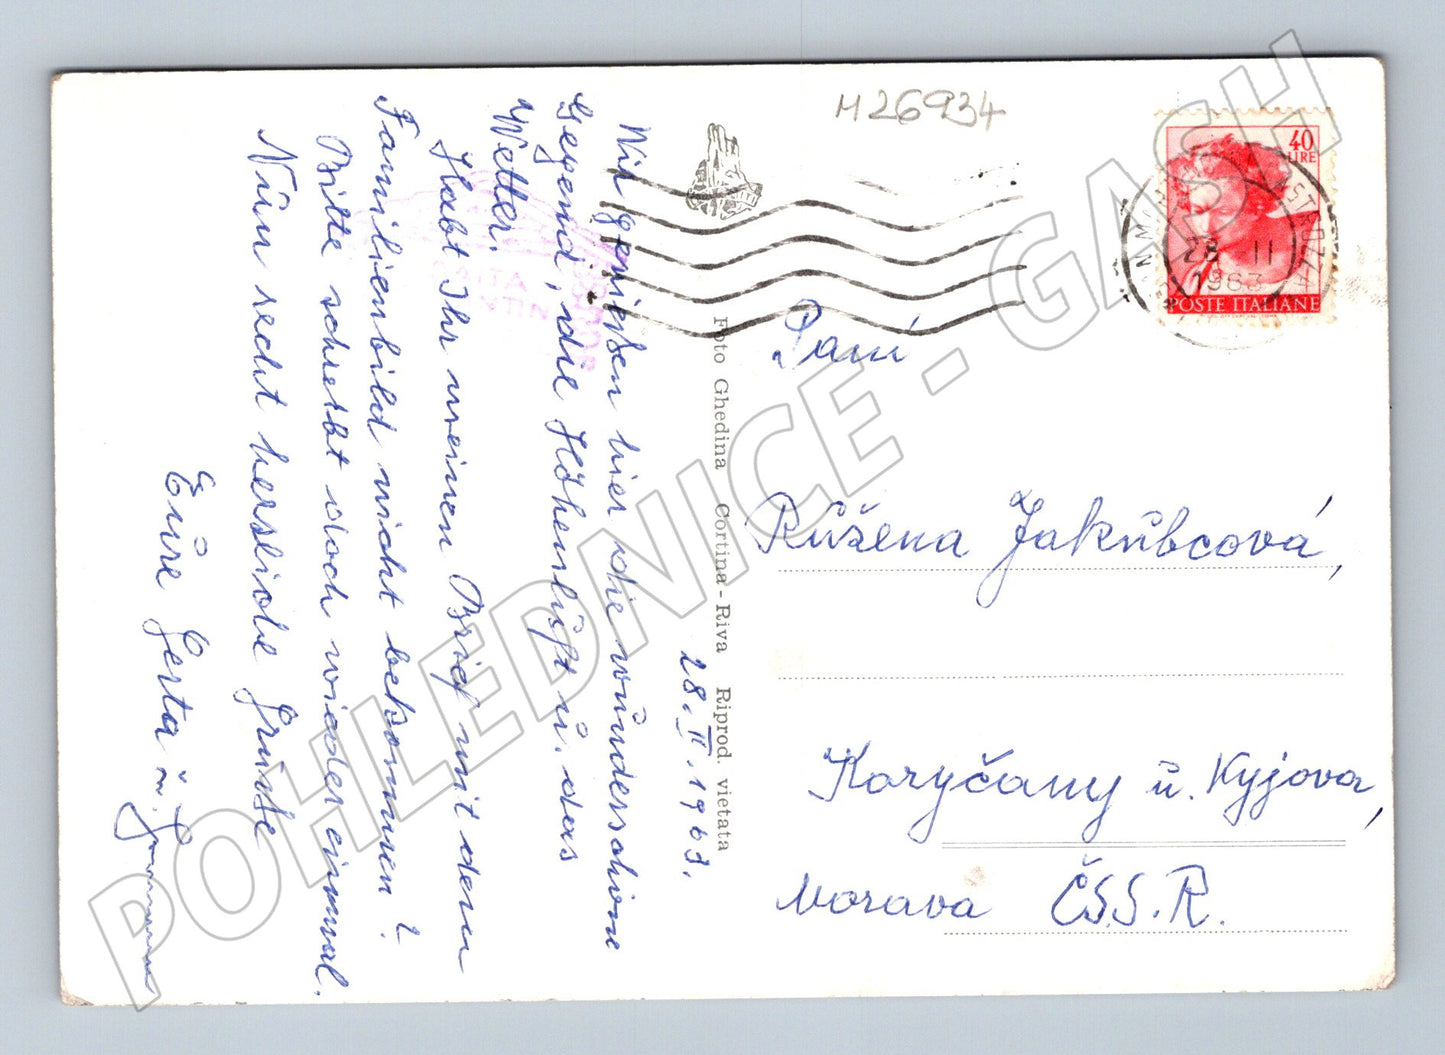 M26934
40
LIRE
28 II
1963
POSTE ITALIANE
28. II. 1963.
Wir genießen hier die wunderschöne
Gegend, die Höhenluft u. das
Wetter.
Habt Ihr meinen Brief mit dem
Familienbild nicht bekommen?
Bitte schreibt doch wieder einmal.
Nun recht herzliche Grüße
Eure Gerta u.
Foto Ghedina Cortina - Riva Riprod. vietata
Paní
Růžena Jakubcová,
Koryčany u. Kyjova,
Morava Č.S.S.R.
POHLEDNICE - GASH